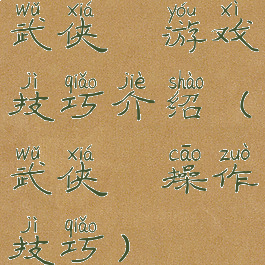 wǔ xiá yóu xì
武侠 游戏
jì qiǎo jiè shào
技巧介绍（
wǔ xiá cāo zuò
武侠 操作
jì qiǎo
技巧）